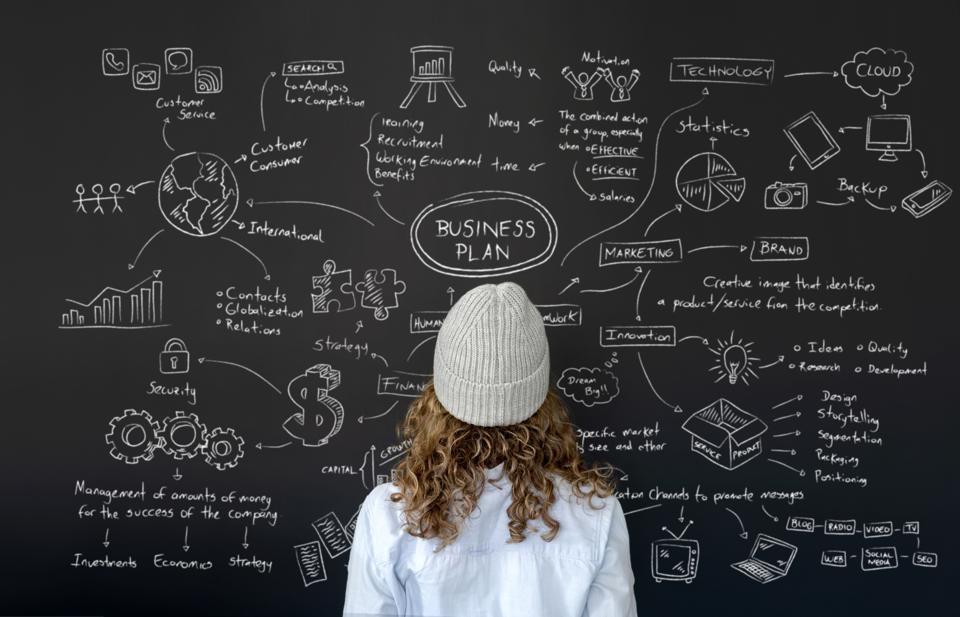 Customer
Service
SEARCH
Analysis
Competition
Customer
Consumer
International
Contacts
Globalization
Relations
learning
Recruitment
Working Environment
Benefits
Quality
Money
time
Motivation
The combined action
of a group, especially
when EFFECTIVE
EFFICIENT
Salaries
TECHNOLOGY
CLOUD
Statistics
Backup
BUSINESS
PLAN
MARKETING
BRAND
Creative image that identifies
a product/service from the competition.
HUMAN
Innovation
Ideas Quality
Research Development
Dream
Big!!
Strategy
Security
CAPITAL
GROWTH
specific market
size and other
SERVICE PRODUCT
Design
Storytelling
Segmentation
Packaging
Positioning
Management of amounts of money
for the success of the company.
Investments Economics Strategy
Channels to promote messages
BLOG RADIO VIDEO TV
WEB SOCIAL MEDIA SEO